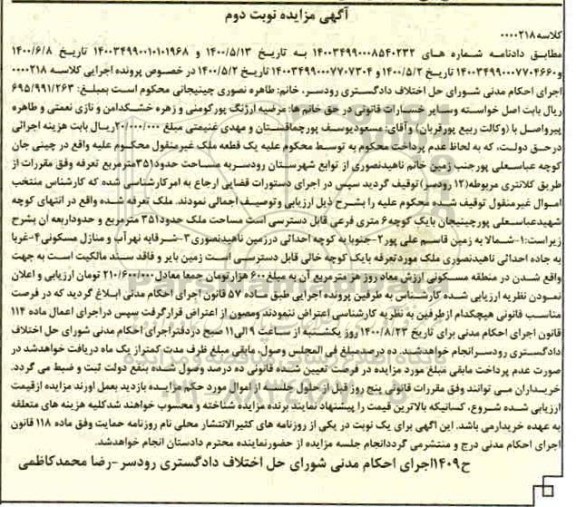 آگهی مزایده نوبت دوم
کلاسه ۰۰۰۰۲۱۸
مطابق دادنامه شماره های ۱۴۰۰۳۴۹۹۰۰۰۸۵۴۰۲۳۲ به تاریخ ۱۴۰۰/۵/۱۳ و ۱۴۰۰۳۴۹۹۰۰۰۱۰۱۰۱۹۶۸ تاریخ ۱۴۰۰/۶/۸
و۱۴۰۰۳۴۹۹۰۰۰۷۷۰۴۶۶۰ تاریخ ۱۴۰۰/۵/۲ و ۱۴۰۰۳۴۹۹۰۰۰۷۷۰۷۳۰۴ تاریخ ۱۴۰۰/۵/۲ در خصوص پرونده اجرایی کلاسه ۰۰۰۰۲۱۸
اجرای احکام مدنی شورای حل اختلاف دادگستری رودسر، خانم: طاهره نصوری چینیجانی محکوم است بمبلغ: ۶۹۵/۹۹۱/۲۶۳
ریال بابت اصل خواسته وسایر خسارات قانونی در حق خانم ها: مرضیه ارژنگ پورکومنی و زهره خشکدامن و نازی نعمتی و طاهره
پیرواصل با (وکالت ربیع پورقربان) و آقای: مسعودیوسف پورچمافستان و مهدی غنیمتی مبلغ ۲۰/۰۰۰/۰۰۰ریال بابت هزینه اجرائی
درحق دولت، که به لحاظ عدم پرداخت محکوم به توسط محکوم علیه یک قطعه ملک غیرمنقول محکوم علیه واقع در چینی جان
کوچه عباسعلی پورجنب زمین خانم ناهیدنصوری از توابع شهرستان رودسربه مساحت حدود۳۵۱مترمربع تعرفه وفق مقررات از
طریق کلانتری مربوطه(۱۲ رودسر)توقیف گردید سپس در اجرای دستورات قضایی ارجاع به امرکارشناسی شده که کارشناس منتخب
اموال غیرمنقول توقیف شده محکوم علیه را بشرح ذیل ارزیابی وتوصیف اجمالی نمودند. ملک تعرفه شده واقع در انتهای کوچه
شهیدعباسعلی پورچینیجان بایک کوچه ۶ متری فرعی قابل دسترسی است مساحت ملک حدود۳۵۱ مترمربع و حدوداربعه ان بشرح
زیراست:۱-شمالا به زمین قاسم علی پور۲-جنوبا به کوچه احداثی درزمین ناهیدنصوری۳-شرقابه نهرآب و منازل مسکونی۴-غربا
به جاده احداثی ناهیدنصوری ملک موردتعرفه بایک کوچه خاکی قابل دسترسی است زمین بایر و فاقد سند مالکیت است به جهت
واقع شدن در منطقه مسکونی ارزش معاد روز هر مترمربع آن به مبلغ۶۰۰ هزارتومان جمعا معادل ۲۱۰/۶۰۰/۰۰۰ تومان ارزیابی و اعلان
نمودن نظریه ارزیابی شده کارشناس به طرفین پرونده اجرایی طبق ماده ۵۷ قانون اجرای احکام مدنی ابلاغ گردید که در فرصت
مناسب قانونی هیچکدام ازطرفین به نظریه کارشناسی اعتراض ننمودند ومصون از اعتراض قرارگرفت سپس دراجرای اعمال ماده ۱۱۴
قانون اجرای احکام مدنی برای تاریخ ۱۴۰۰/۸/۲۳ روز یکشنبه از ساعت ۹ الی۱۱ صبح دردفتراجرای احکام مدنی شورای حل اختلاف
دادگستری رودسرانجام خواهدشد. ده درصدمبلغ فی المجلس وصول مابقی مبلغ ظرف مدت کمتراز یک ماه دریافت خواهدشد در
صورت عدم پرداخت مابقی مبلغ مورد مزایده در فرصت تعیین شده قانونی ده درصد وصول شده بنفع دولت ثبت و ضبط می گردد.
خریداران می توانند وفق مقررات قانونی پنج روز قبل از حلول جلسه از اموال مورد حکم مزایده بازدید بعمل اورند مزایده ازقیمت
ارزیابی شده شروع، کسانیکه بالاترین قیمت را پیشنهاد نمایند برنده مزایده شناخته و محسوب خواهند شدکلیه هزینه های متعلقه
به عهده خریدارمی باشد. این اگهی برای یک نوبت در یکی از روزنامه های کثیرالانتشار محلی نام روزنامه حمایت وفق ماده ۱۱۸ قانون
اجرای احکام مدنی درج و منتشرمی گرددانجام جلسه مزایده از حضورنماینده محترم دادستان انجام خواهدشد.
ح۱۴۰۹اجرای احکام مدنی شورای حل اختلاف دادگستری رودسر-رضا محمدکاظمی